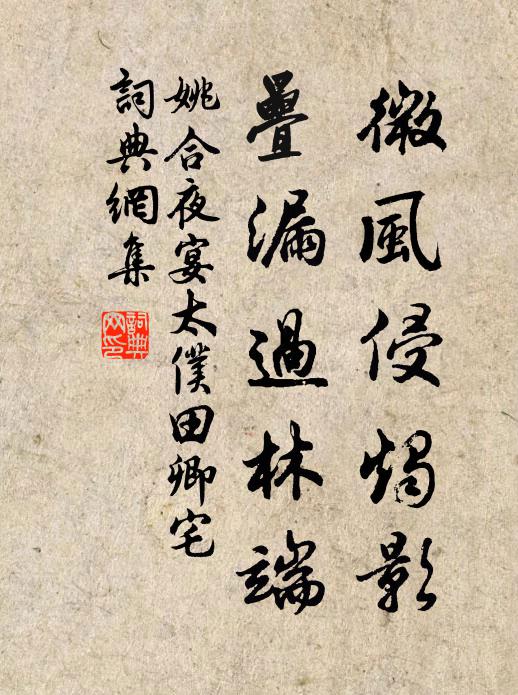 微風侵燭影
疊漏過林端
姚合夜宴太僕田卿宅
詞典網集
詞典網印